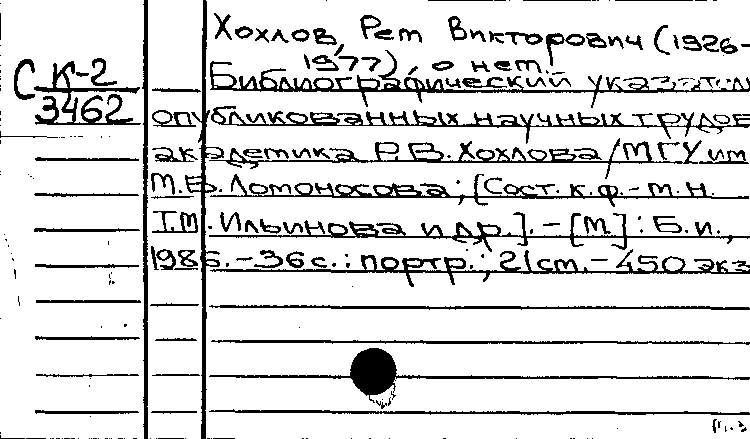 Хохлов, Рем Викторович (1926-
1977), о нем.
С К-2
3462
Библиографический указатель
опубликованных научных трудов
академика Р.В. Хохлова / МГУ им
М.В. Ломоносова; [Сост. к.ф.-м.н.
Т.М. Ильинова и др.]. - [М.] : Б.и.,
1986. - 36 с. : портр.; 21 см. - 450 экз